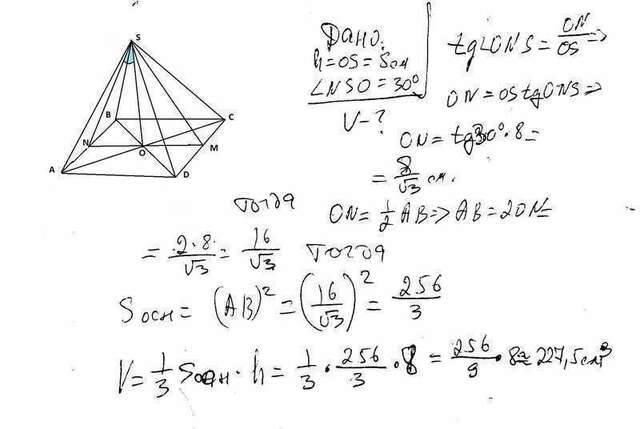 S
B
C
N
O
M
A
D
Дано:
h=OS=8см
∠NSO=30°
V-?
tg∠ONS=ON/OS⇒
ON=OS tgONS⇒
ON=tg30°·8=
=8/√3 см.
тогда
ON=1/2 AB⇒AB=2ON=
=2·8/√3=16/√3 тогда
Sосн=(AB)²=(16/√3)²=256/3
V=1/3 Sосн·h=1/3·256/3·8=256/9·8≈227,5см³